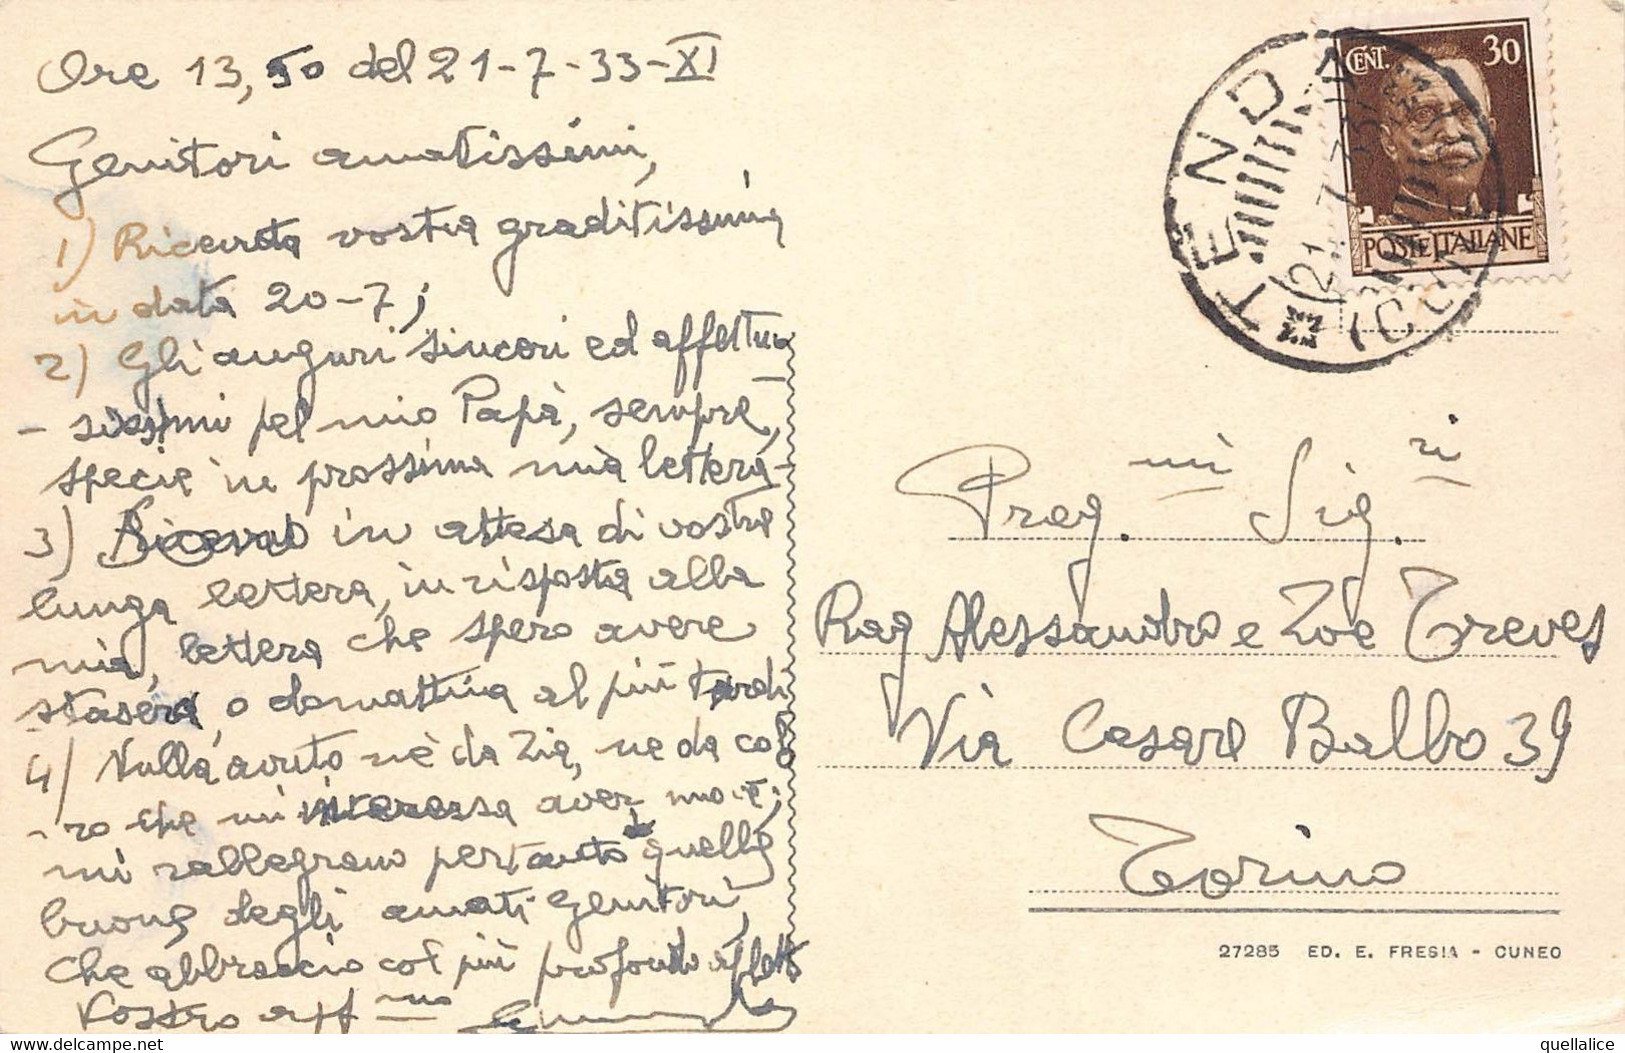 Ore 13,50 del 21-7-33-XI
Genitori amatissimi,
1) Ricevuta vostra graditissima
in data 20-7;
2) Gli auguri sinceri ed affettuo
- sissimi pel mio Papà, sempre,
specie in prossima mia lettera-
3) in attesa di vostra
lunga lettera, in risposta alla
mia, lettera che spero avere
stasera, o domattina al più tardi
4) Nulla avuto nè da Zia, ne da colo
- ro che mi interessa aver nuove;
mi rallegrano pertanto quelle
buone degli amati Genitori,
che abbraccio col più profondo affetto
Vostro aff mo
CENT. 30
POSTE ITALIANE
TENDA
(CUNEO)
21.7.33
Preg.mi Sig.ri
Rag Alessandro e Zoe Treves
Via Cesare Balbo 39
Torino
27285 ED. E. FRESIA - CUNEO
https://www.delcampe.net
quellalice